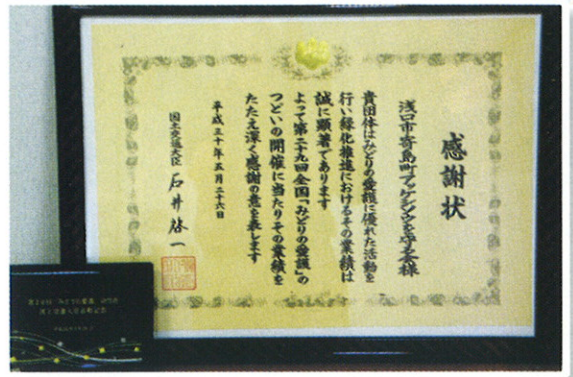 感謝状
浅口市寄島町アッケシソウを守る会様
貴団体はみどりの愛護に優れた活動を
行い緑化推進におけるその業績は
誠に顕著であります
よって第二十九回全国「みどりの愛護」の
つどいの開催に当たりその業績を
たたえ深く感謝の意を表します
平成三十年五月二十六日
国土交通大臣 石井啓一